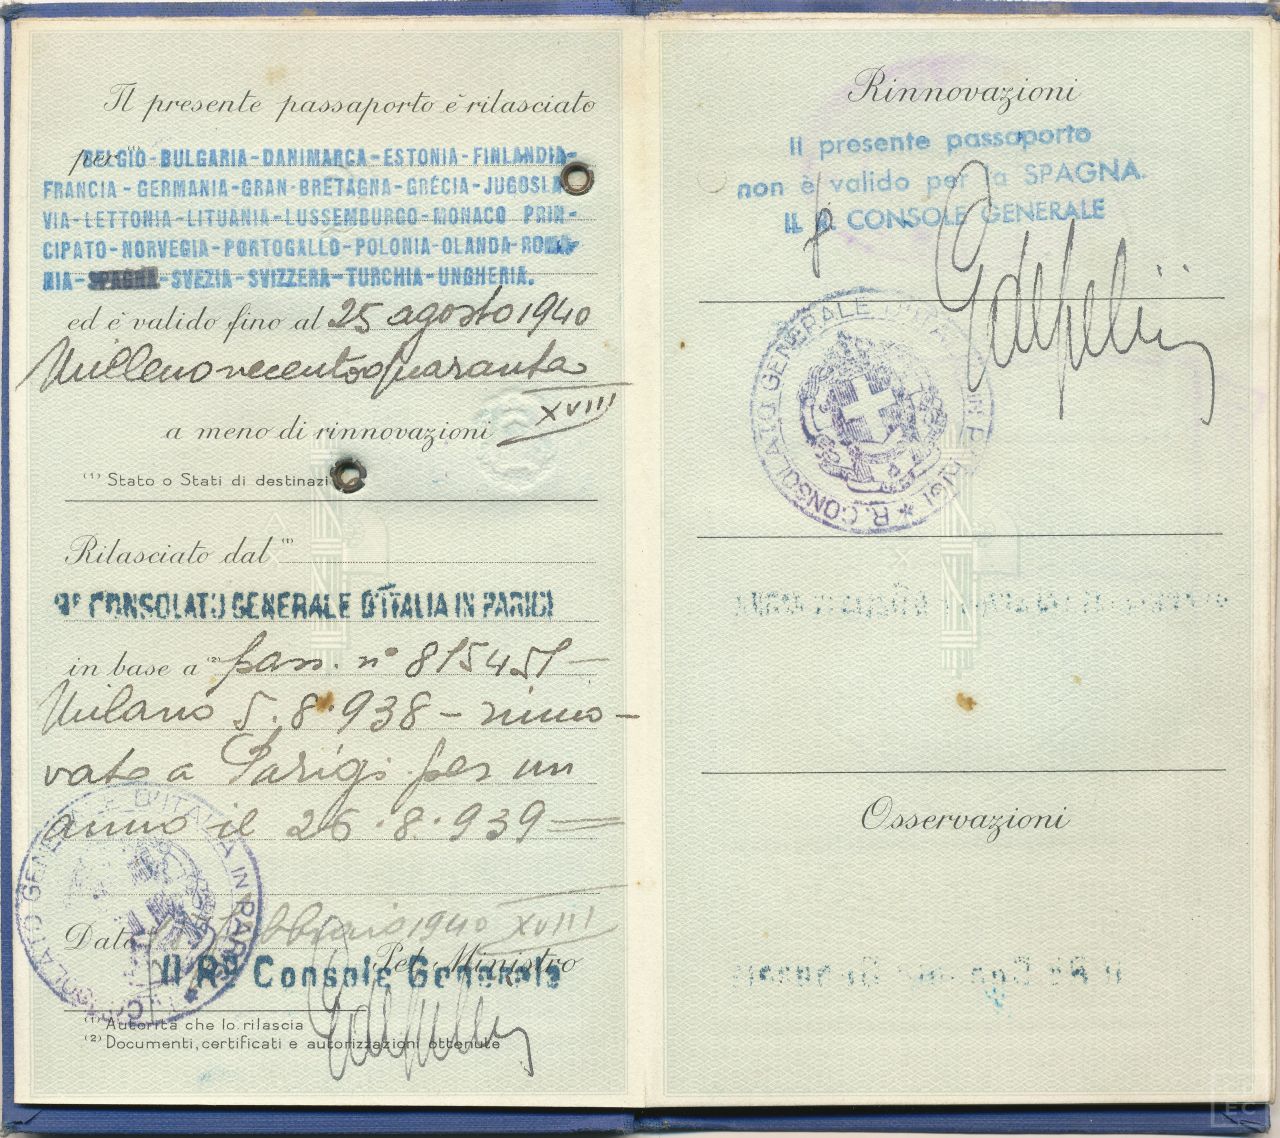 Il presente passaporto è rilasciato
per (1) BELGIO-BULGARIA-DANIMARCA-ESTONIA-FINLANDIA-
FRANCIA-GERMANIA-GRAN-BRETAGNA-GRECIA-JUGOSLA
VIA-LETTONIA-LITUANIA-LUSSEMBURGO-MONACO PRIN-
CIPATO-NORVEGIA-PORTOGALLO-POLONIA-OLANDA-ROMA-
NIA-SPAGNA-SVEZIA-SVIZZERA-TURCHIA-UNGHERIA.
ed è valido fino al 25 agosto 1940
Millenovecentoquaranta
XVIII
a meno di rinnovazioni
(1) Stato o Stati di destinazi
Rilasciato dal (1)
Rº CONSOLATO GENERALE D'ITALIA IN PARIGI
in base a (2) pass. nº 815451 —
Milano 5.8.938 – rinno–
vato a Parigi per un
anno il 26.8.939
Data febbraio 1940 XVIII
Pel Ministro
Il Rº Console Generale
(1) Autorità che lo rilascia
(2) Documenti, certificati e autorizzazioni ottenute
CONSOLATO GENERALE D'ITALIA IN PARIGI
Rinnovazioni
Il presente passaporto
non è valido per la SPAGNA.
IL R. CONSOLE GENERALE
R. CONSOLATO GENERALE D'ITALIA IN PARIGI
Osservazioni